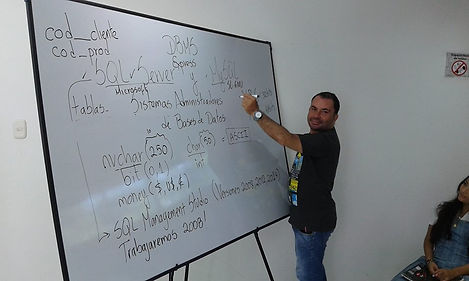 cod__cliente
cod_prod
DBMS
Express
SQL Server y MySQL
Microsoft
tablas
Sistemas Administradores
de Bases de Datos
nvchar (250) char (50) = ASCII
bit (0,1) int
money ($, €)
SQL Management Studio (Versiones 2008, 2012, 2014)
Trabajaremos 2008!